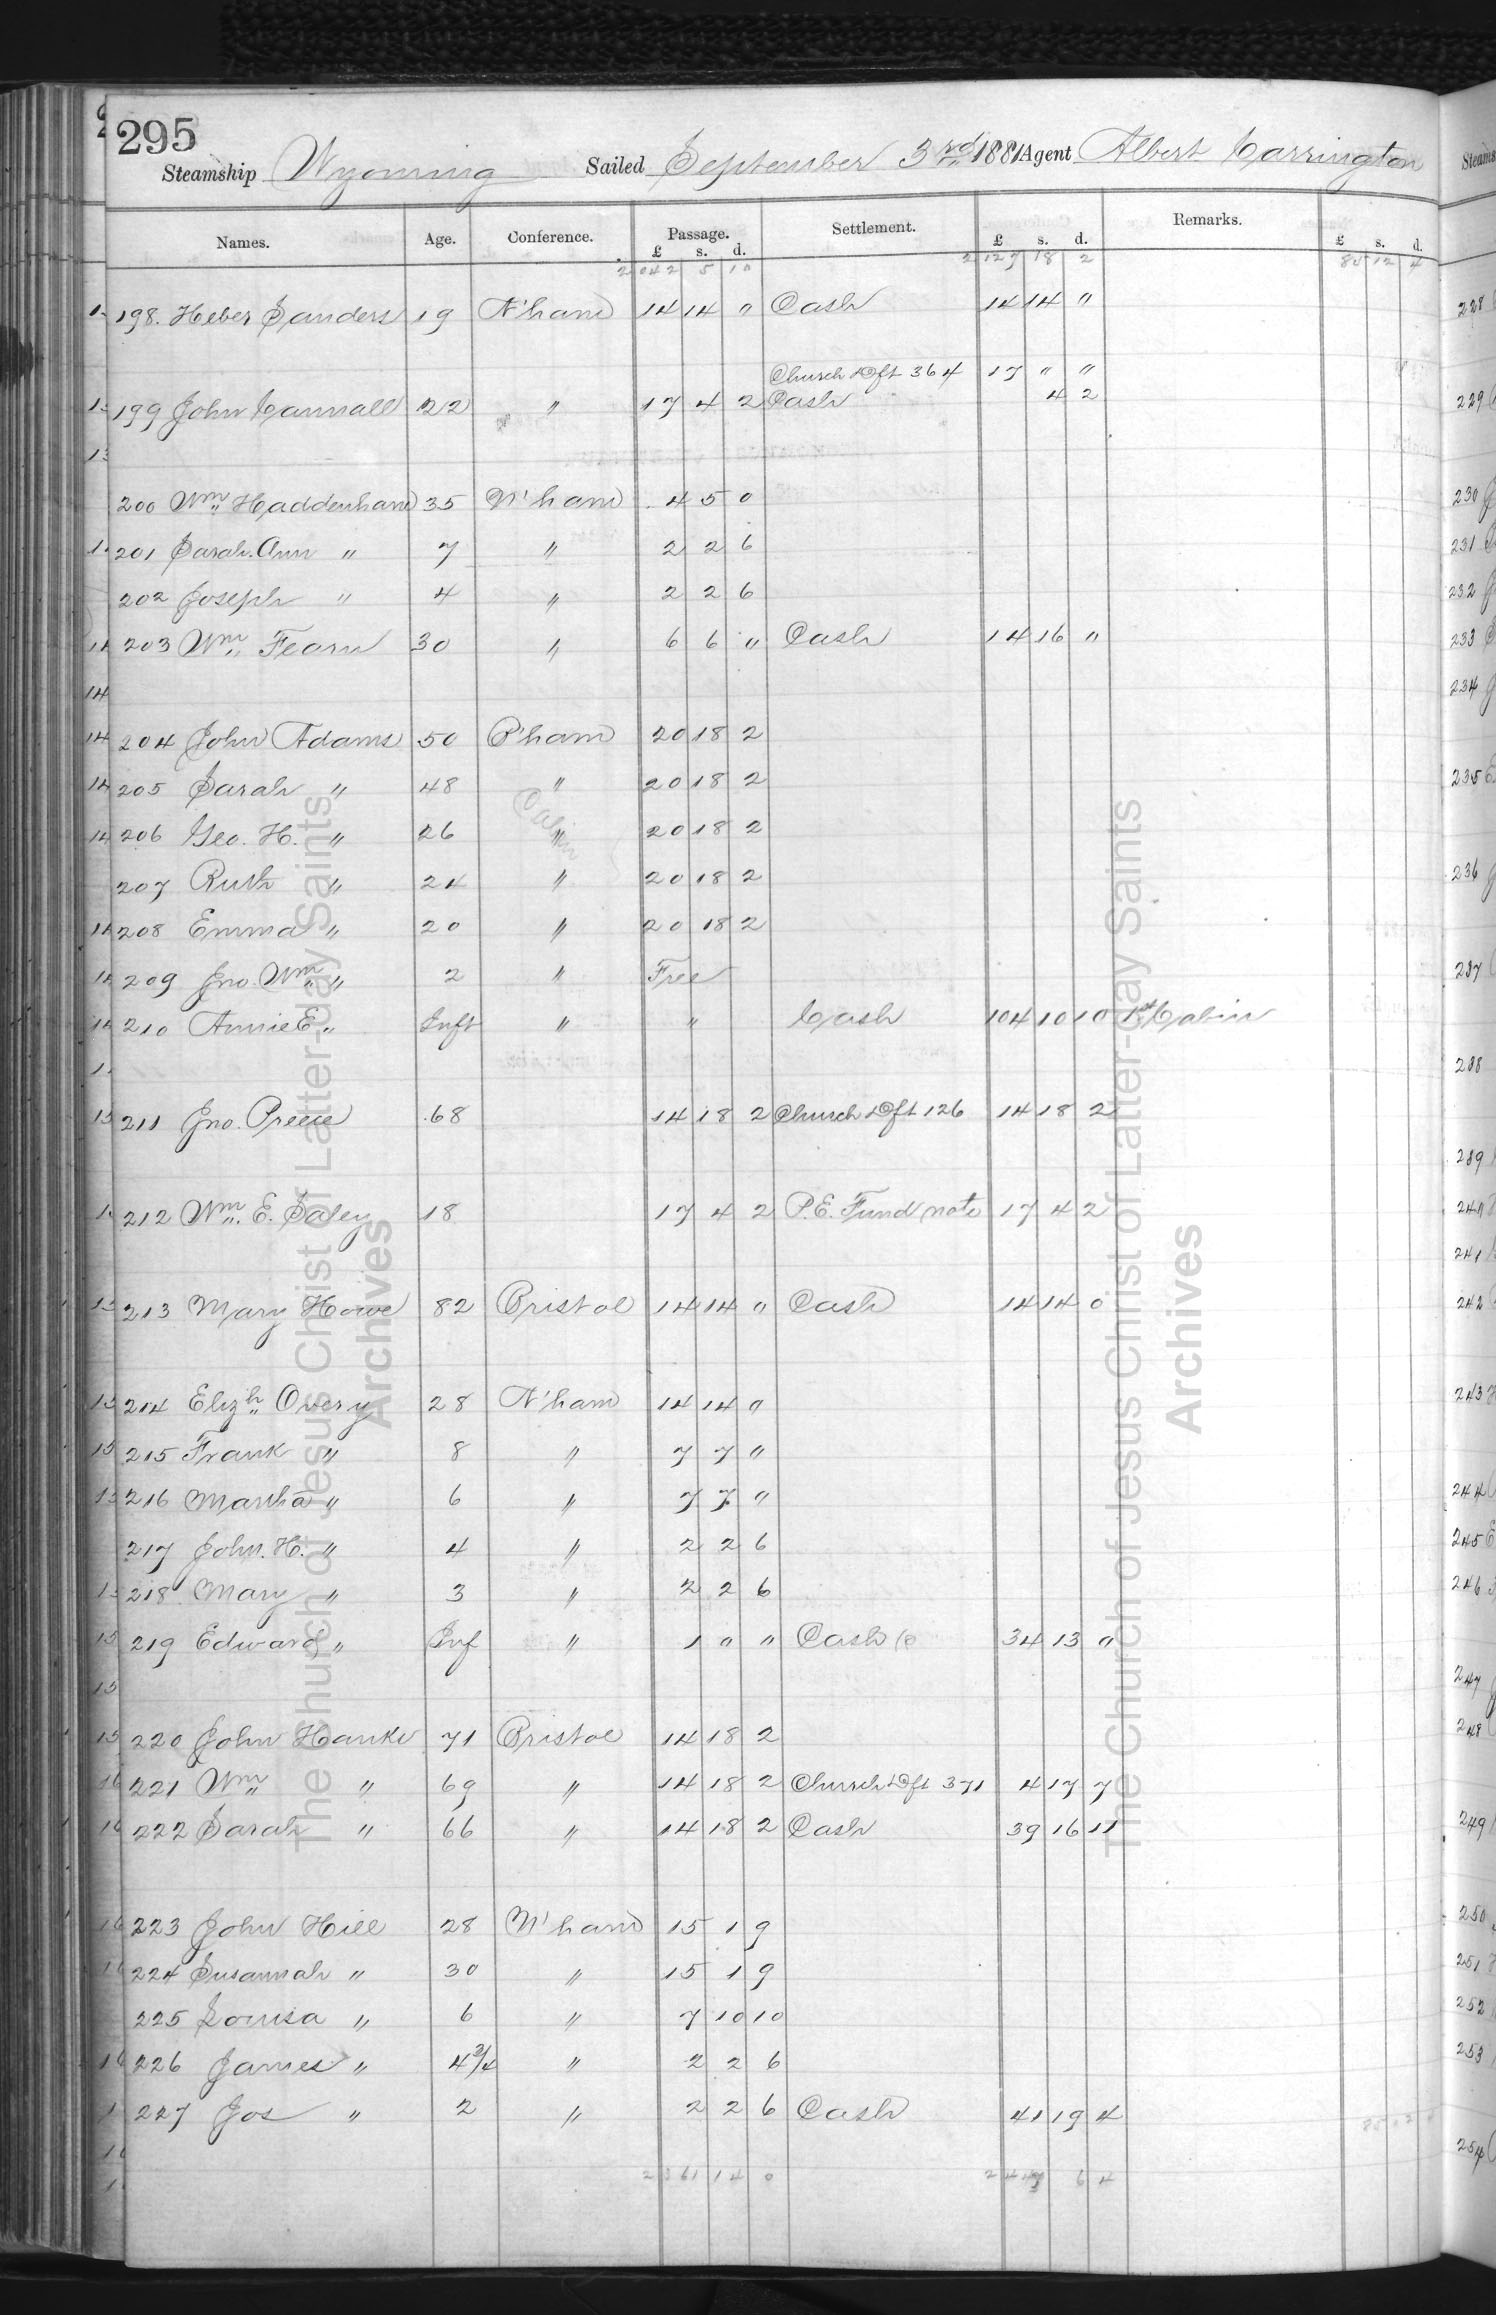 295
Steamship Wyoming Sailed September 3rd 1881 Agent Albert Carrington
Names. Age. Conference. Passage. Settlement. £ s. d. Remarks. £ s. d.
£ s. d.
2042 5 10 2127 18 2 85 12 4
198. Heber Sanders 19 N'ham 14 14 " Cash 14 14 "
Church Dft 364 17 " "
199 John Cannall 22 " 17 4 2 Cash 4 2
200 Wm Haddenham 35 N'ham 4 5 0
201 Sarah Ann " 7 " 2 2 6
202 Joseph " 4 " 2 2 6
203 Wm Fearn 30 " 6 6 " Cash 14 16 "
204 John Adams 50 B'ham 20 18 2
205 Sarah " 48 " 20 18 2
206 Geo. H. " 26 " 20 18 2
Cabin
207 Ruth " 24 " 20 18 2
208 Emma " 20 " 20 18 2
209 Jno. Wm " 2 " Free
210 Annie E. " Inft " " Cash 104 10 10 1st Cabin
211 Jno. Preece 68 14 18 2 Church Dft 126 14 18 2
212 Wm. E. Saley 18 17 4 2 P.E. Fund note 17 4 2
213 Mary Howe 82 Bristol 14 14 " Cash 14 14 0
214 Elizh Overy 28 N'ham 14 14 "
215 Frank " 8 " 7 7 "
216 Martha " 6 " 7 7 "
217 John. H. " 4 " 2 2 6
218 Mary " 3 " 2 2 6
219 Edward " Inf " 1 " " Cash 34 13 "
220 John Hanks 71 Bristol 14 18 2
221 Wm " 69 " 14 18 2 Church Dft 371 4 17 7
222 Sarah " 66 " 14 18 2 Cash 39 16 11
223 John Hill 28 N'ham 15 1 9
224 Susannah " 30 " 15 1 9
225 Louisa " 6 " 7 10 10
226 James " 4 3/4 " 2 2 6
227 Jos " 2 " 2 2 6 Cash 41 19 4
2361 14 0 6 4
The Church of Jesus Christ of Latter-day Saints
Archives
The Church of Jesus Christ of Latter-day Saints
Archives